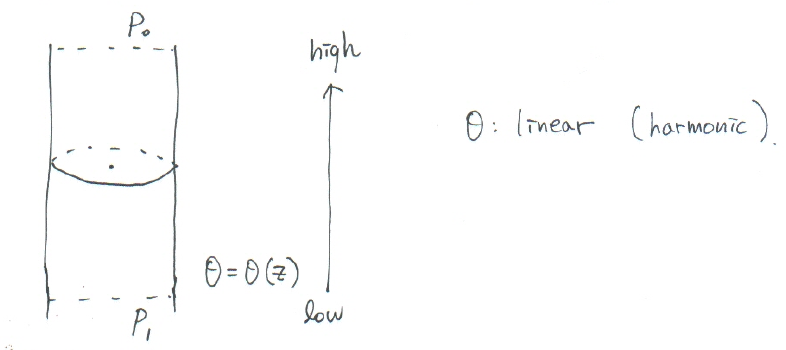 P₀
high
θ: linear (harmonic).
θ = θ(z)
low
P₁